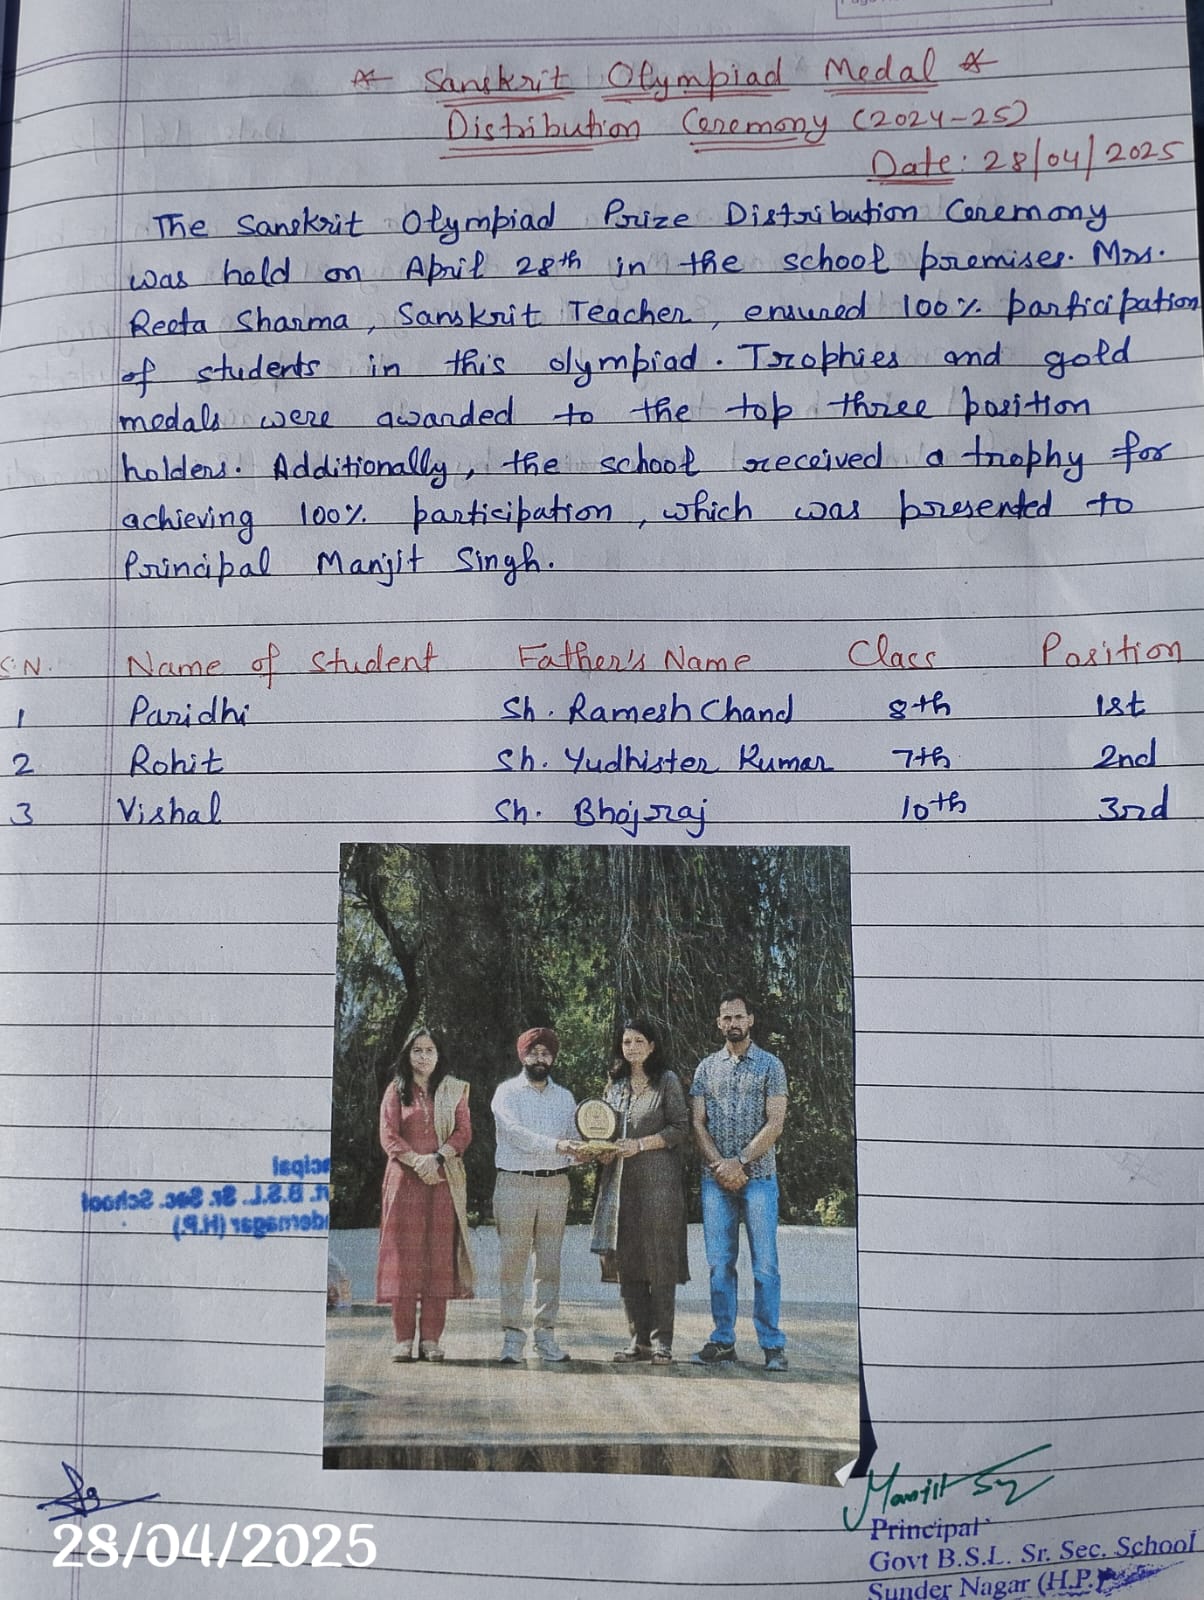 Sanskrit Olympiad Medal
Distribution Ceremony (2024-25)
Date: 28/04/2025
The Sanskrit Olympiad Prize Distribution Ceremony
was held on April 28th in the school premises. Mrs.
Reeta Sharma, Sanskrit Teacher, ensured 100% participation
of students in this olympiad. Trophies and gold
medals were awarded to the top three position
holders. Additionally, the school received a trophy for
achieving 100% participation, which was presented to
Principal Manjit Singh.
S.N. Name of Student Father's Name Class Position
1 Paridhi Sh. Ramesh Chand 8th 1st
2 Rohit Sh. Yudhister Kumar 7th 2nd
3 Vishal Sh. Bhojraj 10th 3rd
cipal
t. B.S.L. Sr. Sec. School
dernagar (H.P.)
28/04/2025
Manjit
Principal
Govt B.S.L. Sr. Sec. School
Sunder Nagar (H.P.)